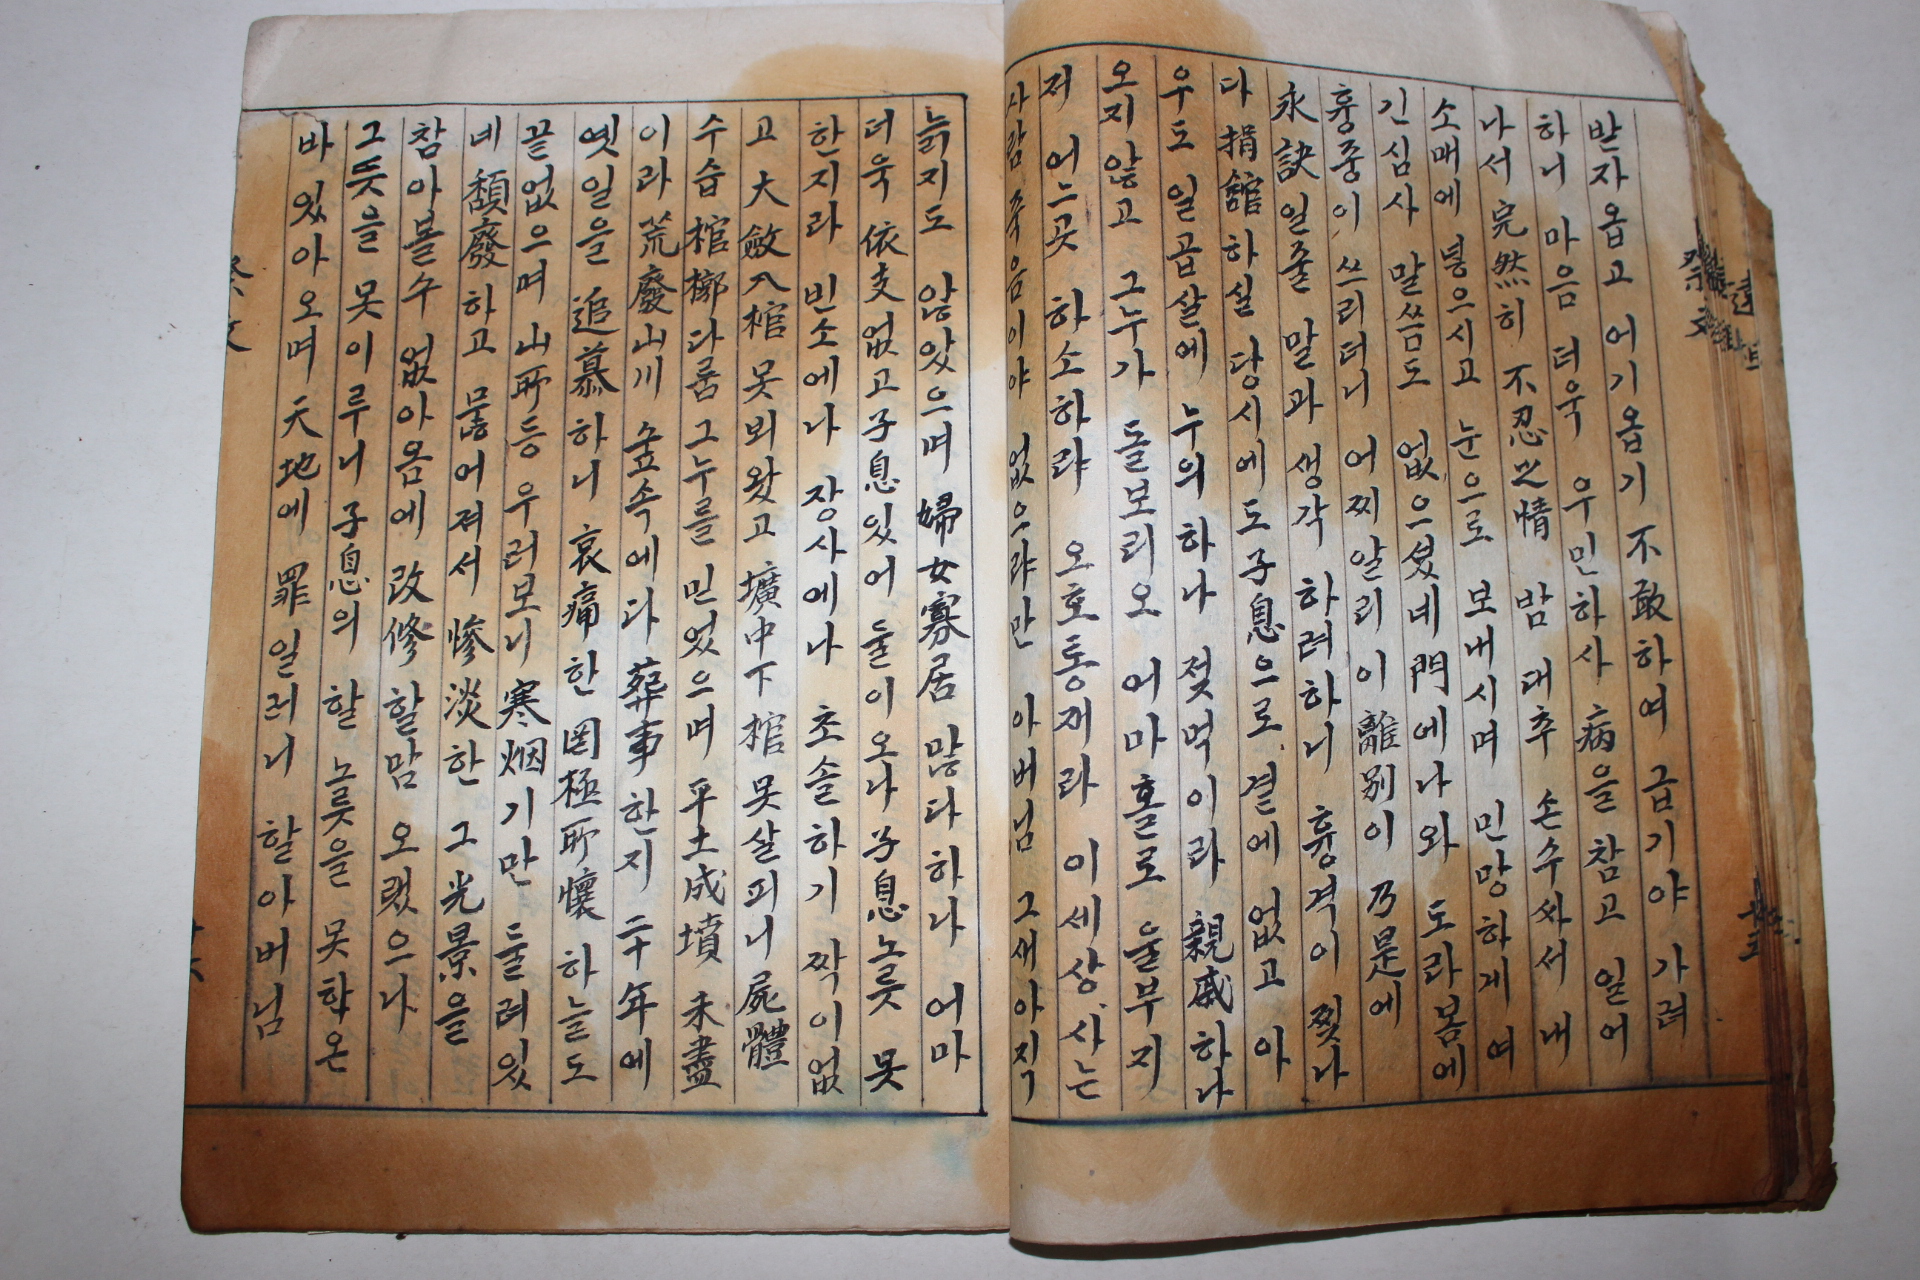 받자옵고 어기옵기 不敢하여 급기야 가려
하니 마음 더욱 우민하사 病을 참고 일어
나서 完然히 不忍之情 밤 대추 손수 싸서 내
소매에 넣으시고 눈으로 보내시며 민망하게 여
긴 심사 말씀도 없으셨네 門에 나와 도라봄에
흉중이 쓰리더니 어찌 알리 이 離別이 乃是에
永訣일줄 말과 생각 하려하니 흉격이 찢나
다 捐館하실 당시에도 子息으로 곁에 없고 아
우도 일곱살에 누의 하나 젖먹이라 親戚하나
오지않고 그누가 돌보리오 어마 홀로 울부지
저 어느곳 하소하랴 오호통재라 이세상 사는
사람 죽음이야 없으랴만 아버님 그새 아직
늙지도 않았으며 婦女寡居 많다하나 어마
더욱 依支없고 子息있어 둘이오나 子息노릇 못
한지라 빈소에나 장사에나 초솔하기 짝이없
고 大斂入棺 못뵈왔고 壙中下棺 못살피니 屍體
수습 棺槨다룸 그누를 믿었으며 平土成墳 未盡
이라 荒廢山川 숲속에다 葬事한지 二十年에
옛일을 追慕하니 哀痛한 罔極所懷 하늘도
끝없으며 山所등 우러보니 寒烟기만 둘려있
네 頹廢하고 뭃어져서 慘淡한 그光景을
참아볼수 없아옴에 改修할맘 오렸으나
그뜻을 못이루니 子息의 할 노릇을 못학온
바 있아오며 天地에 罪일러니 할아버님
祭文
祭文